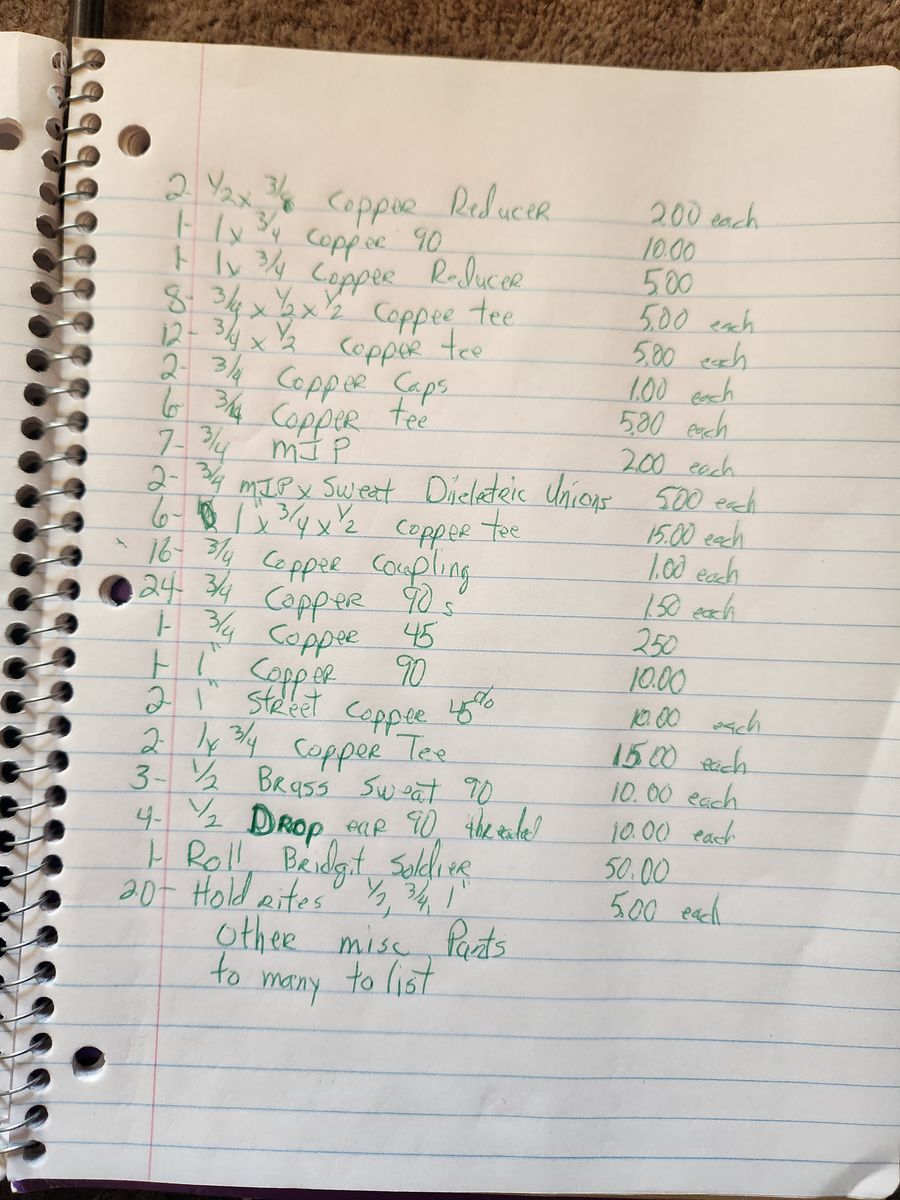 2 1/2 x 3/8 Copper Reducer 2.00 each
1- 1x 3/4 Copper 90 10.00
1- 1x 3/4 Copper Reducer 5.00
8- 3/4 x 1/2 x 1/2 Copper tee 5.00 each
12- 3/4 x 1/2 Copper tee 5.00 each
2- 3/4 Copper Caps 1.00 each
6- 3/4 Copper tee 5.00 each
7- 3/4 MIP 2.00 each
2- 3/4 MIP x Sweat Dieletric Unions 5.00 each
6- 1" x 3/4 x 1/2 Copper tee 15.00 each
16- 3/4 Copper Coupling 1.00 each
24- 3/4 Copper 90s 1.50 each
1- 3/4 Copper 45 2.50
1- 1" Copper 90 10.00
2 1" Street Copper 45 10.00 each
2- 1x 3/4 Copper Tee 15.00 each
3- 1/2 Brass Sweat 90 10.00 each
4- 1/2 Drop ear 90 10.00 each
1- Roll Bridgit Soldier 50.00
20- Hold rites 1/2, 3/4, 1" 5.00 each
Other misc Parts
to many to list